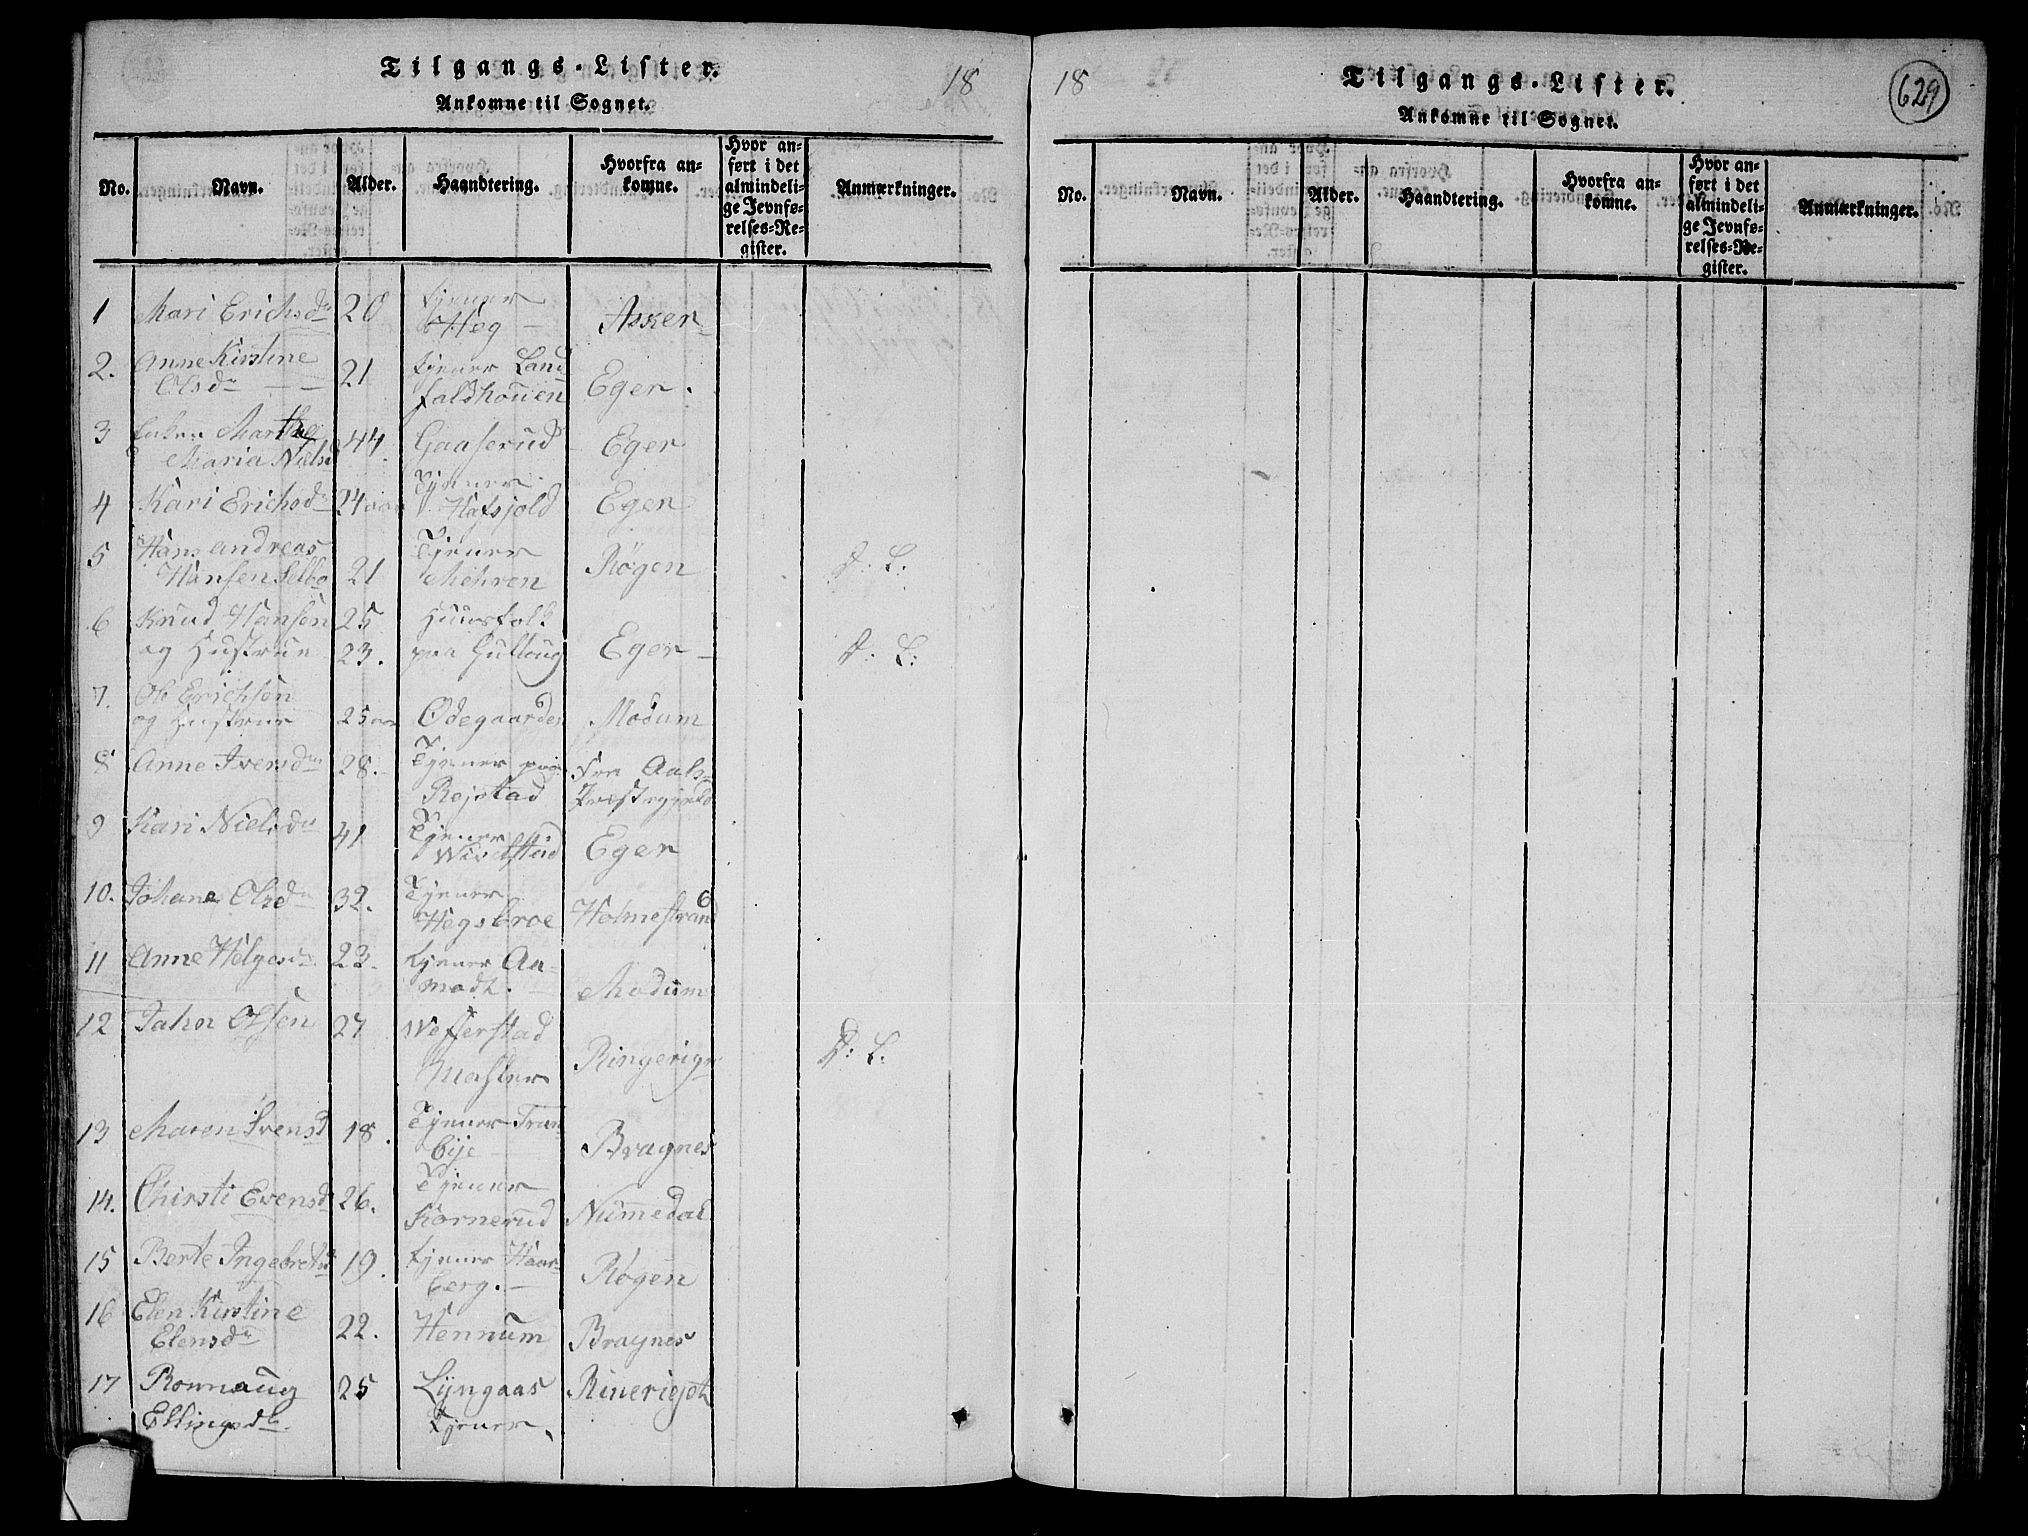 Tilgangs-Lister.
18
Ankomne til Sognet.
No. Navn. Alder. Haandtering. Hvorfra an-komne. Hvor an-ført i det almindeli-ge Jevnfø-relses-Re-gister. Anmærkninger.
1 Mari Erichsdr 20 tjener Høg Asker
2. Anne Kirstine Olsdr 21 tjener Landfaldhouen Eger.
3 Marthe Maria Nielsd 44. Gaaserud Eger
4 Kari Erichsdr 24 aar Tjener Hafsjold Eger
5 Hans Andreas Hansen Selbo 21 Tjener Mehren Røgen D. L.
6 Knud Hansen og Hustrue 25 23. Huusfolk paa Gulloug Eger D: L:
7. Ole Erichsen og Hustrue 25 aar Ødegaarden Modum
8 Anne Iversdr 28. Tjener paa Rejstad Fra Aals Præstegjeld
9 Kari Nielsdr 41 Tjener Wivelstad Eger
10. Johane Olsdr 32. Tjener Hegsbroe Holmestrand
11 Anne Helgesdr 23. tjener Aamodt. Modum
12 Johan Olsen 27 Wefferstad Ringerige D: L:
13 Maren Svensd 18. Tjener Tranbye Bragnes
14. Chirsti Evensd 26. Tjener Kornerud Nummedal
15 Berte Ingebretsd 19. tjener Haarberg. Røgen
16 Elen Kirstine Elensdr 22. Hennum Bragnes
17 Ronnaug Ellingsdr. 25 Lyngaas Tjener
18
Tilgangs-Lister.
629
Ankomne til Sognet.
No. Navn. Alder. Haandtering. Hvorfra an-komne. Hvor an-ført i det almindeli-ge Jevnfø-relses-Re-gister. Anmærkninger.